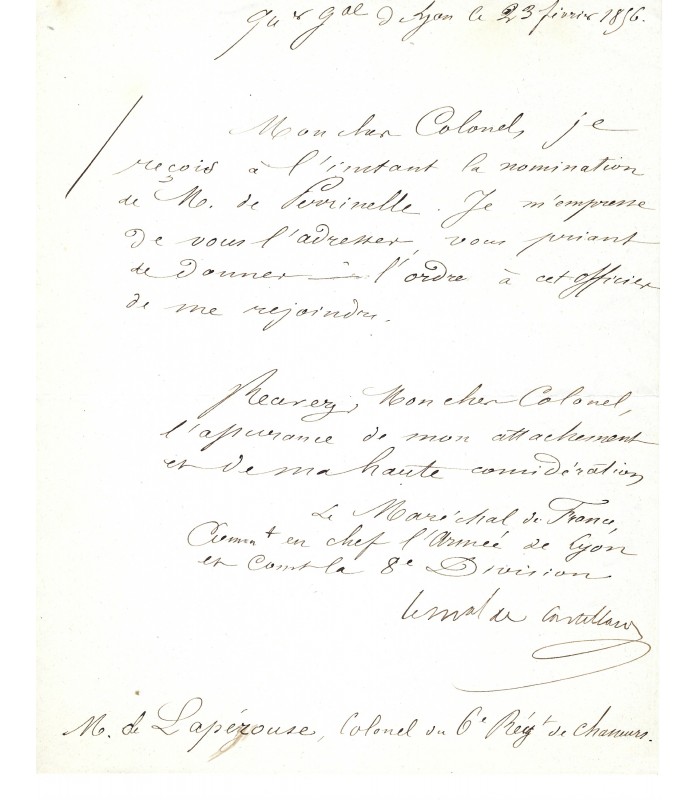 Qu.er G.al de Lyon le 23 février 1856.
Mon cher Colonel, je
reçois à l'intant la nomination
de M. de Perrinelle. Je m'empresse
de vous l'adresser, vous priant
de donner l'ordre à cet officier
de me rejoindre.
Recevez, Mon cher Colonel,
l'assurance de mon attachement
et de ma haute considération
Le Maréchal de France,
Comm.t en chef l'Armée de Lyon
et Comt la 8e Division
le mal de Castellane
M. de Lapérouse, Colonel du 6e Rég.t de chasseurs.